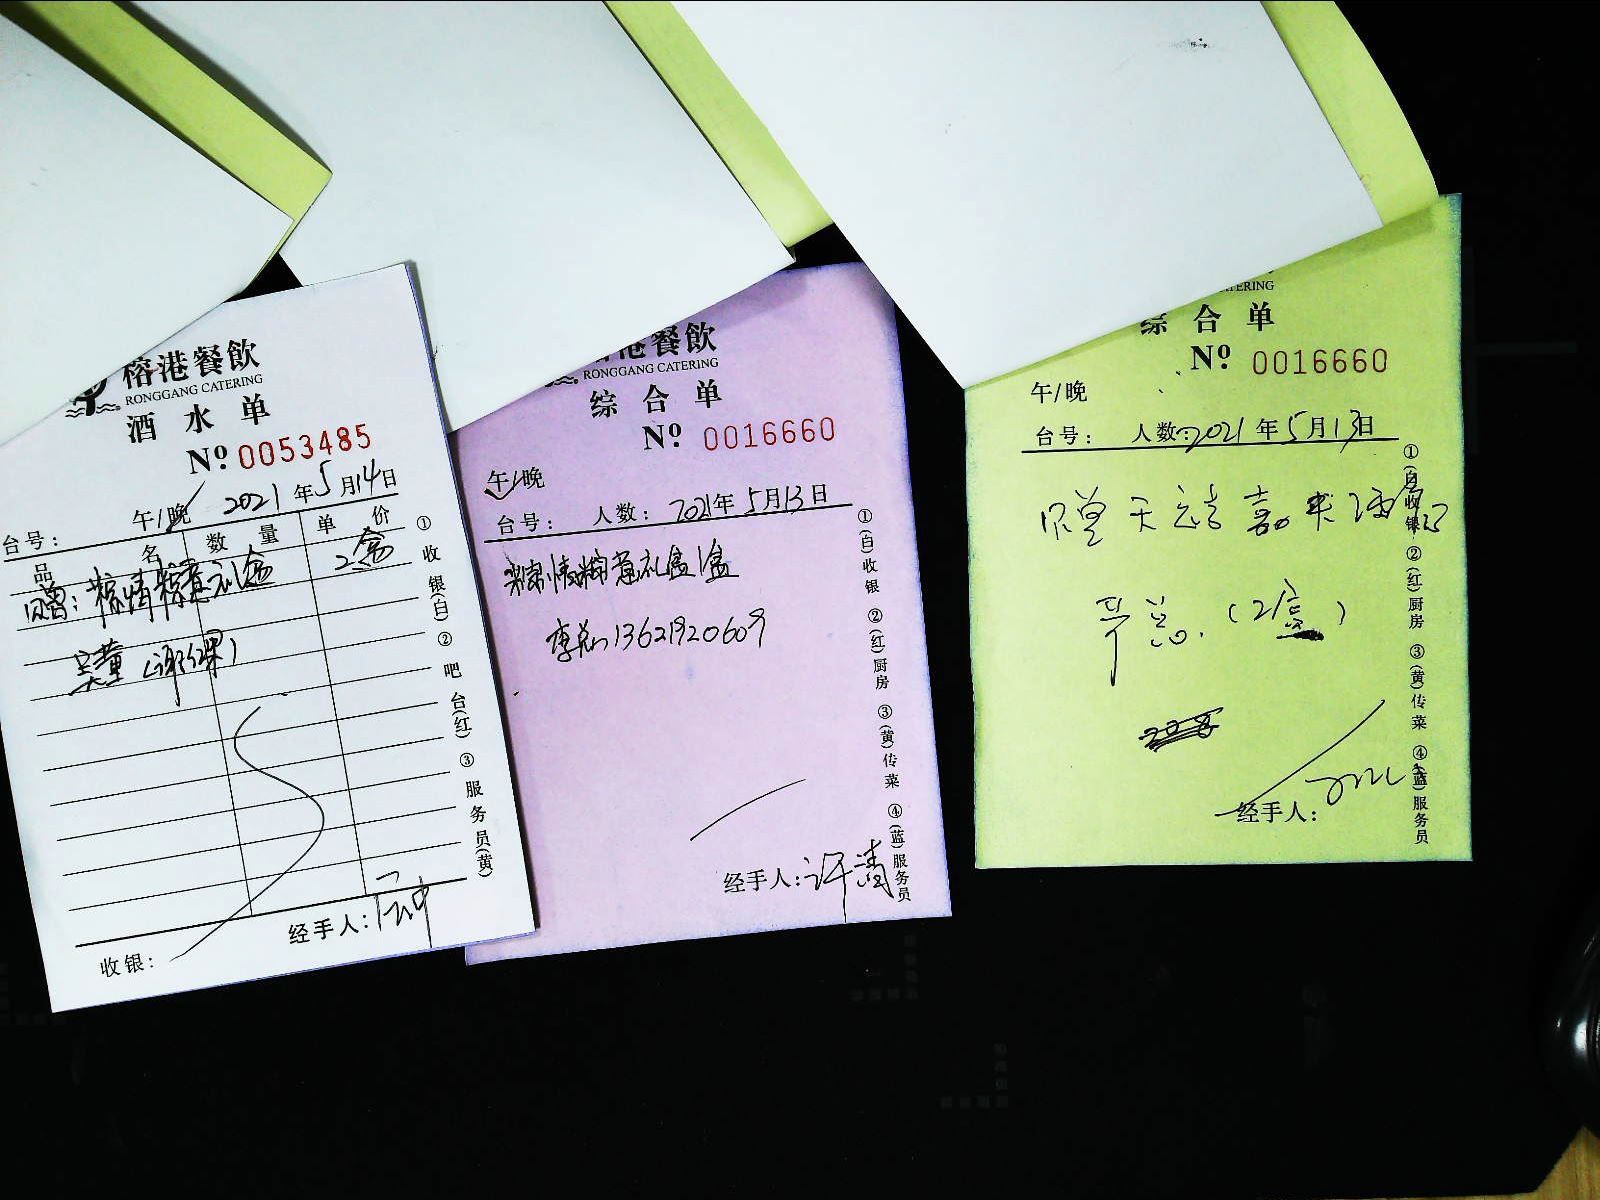 榕港餐飲
RONGGANG CATERING
酒水单
Nº 0053485
午/晚 2021年5月14日
台号:
品名 数量 单价
赠:粽情粽意礼盒 2盒
吴董(谢红果)
经手人:
收银:
①收银(白) ②吧台(红) ③服务员(黄)
港餐飲
RONGGANG CATERING
综合单
Nº 0016660
午/晚
台号: 人数: 2021年5月13日
粽情粽意礼盒1盒
李总 13621920609
经手人:许清
①(白)收银 ②(红)厨房 ③(黄)传菜 ④(蓝)服务员
CATERING
综合单
Nº 0016660
午/晚
台号: 人数: 2021年5月13日
赠 天 嘉
总.(2盒)
经手人:
①(白)收银 ②(红)厨房 ③(黄)传菜 ④(蓝)服务员